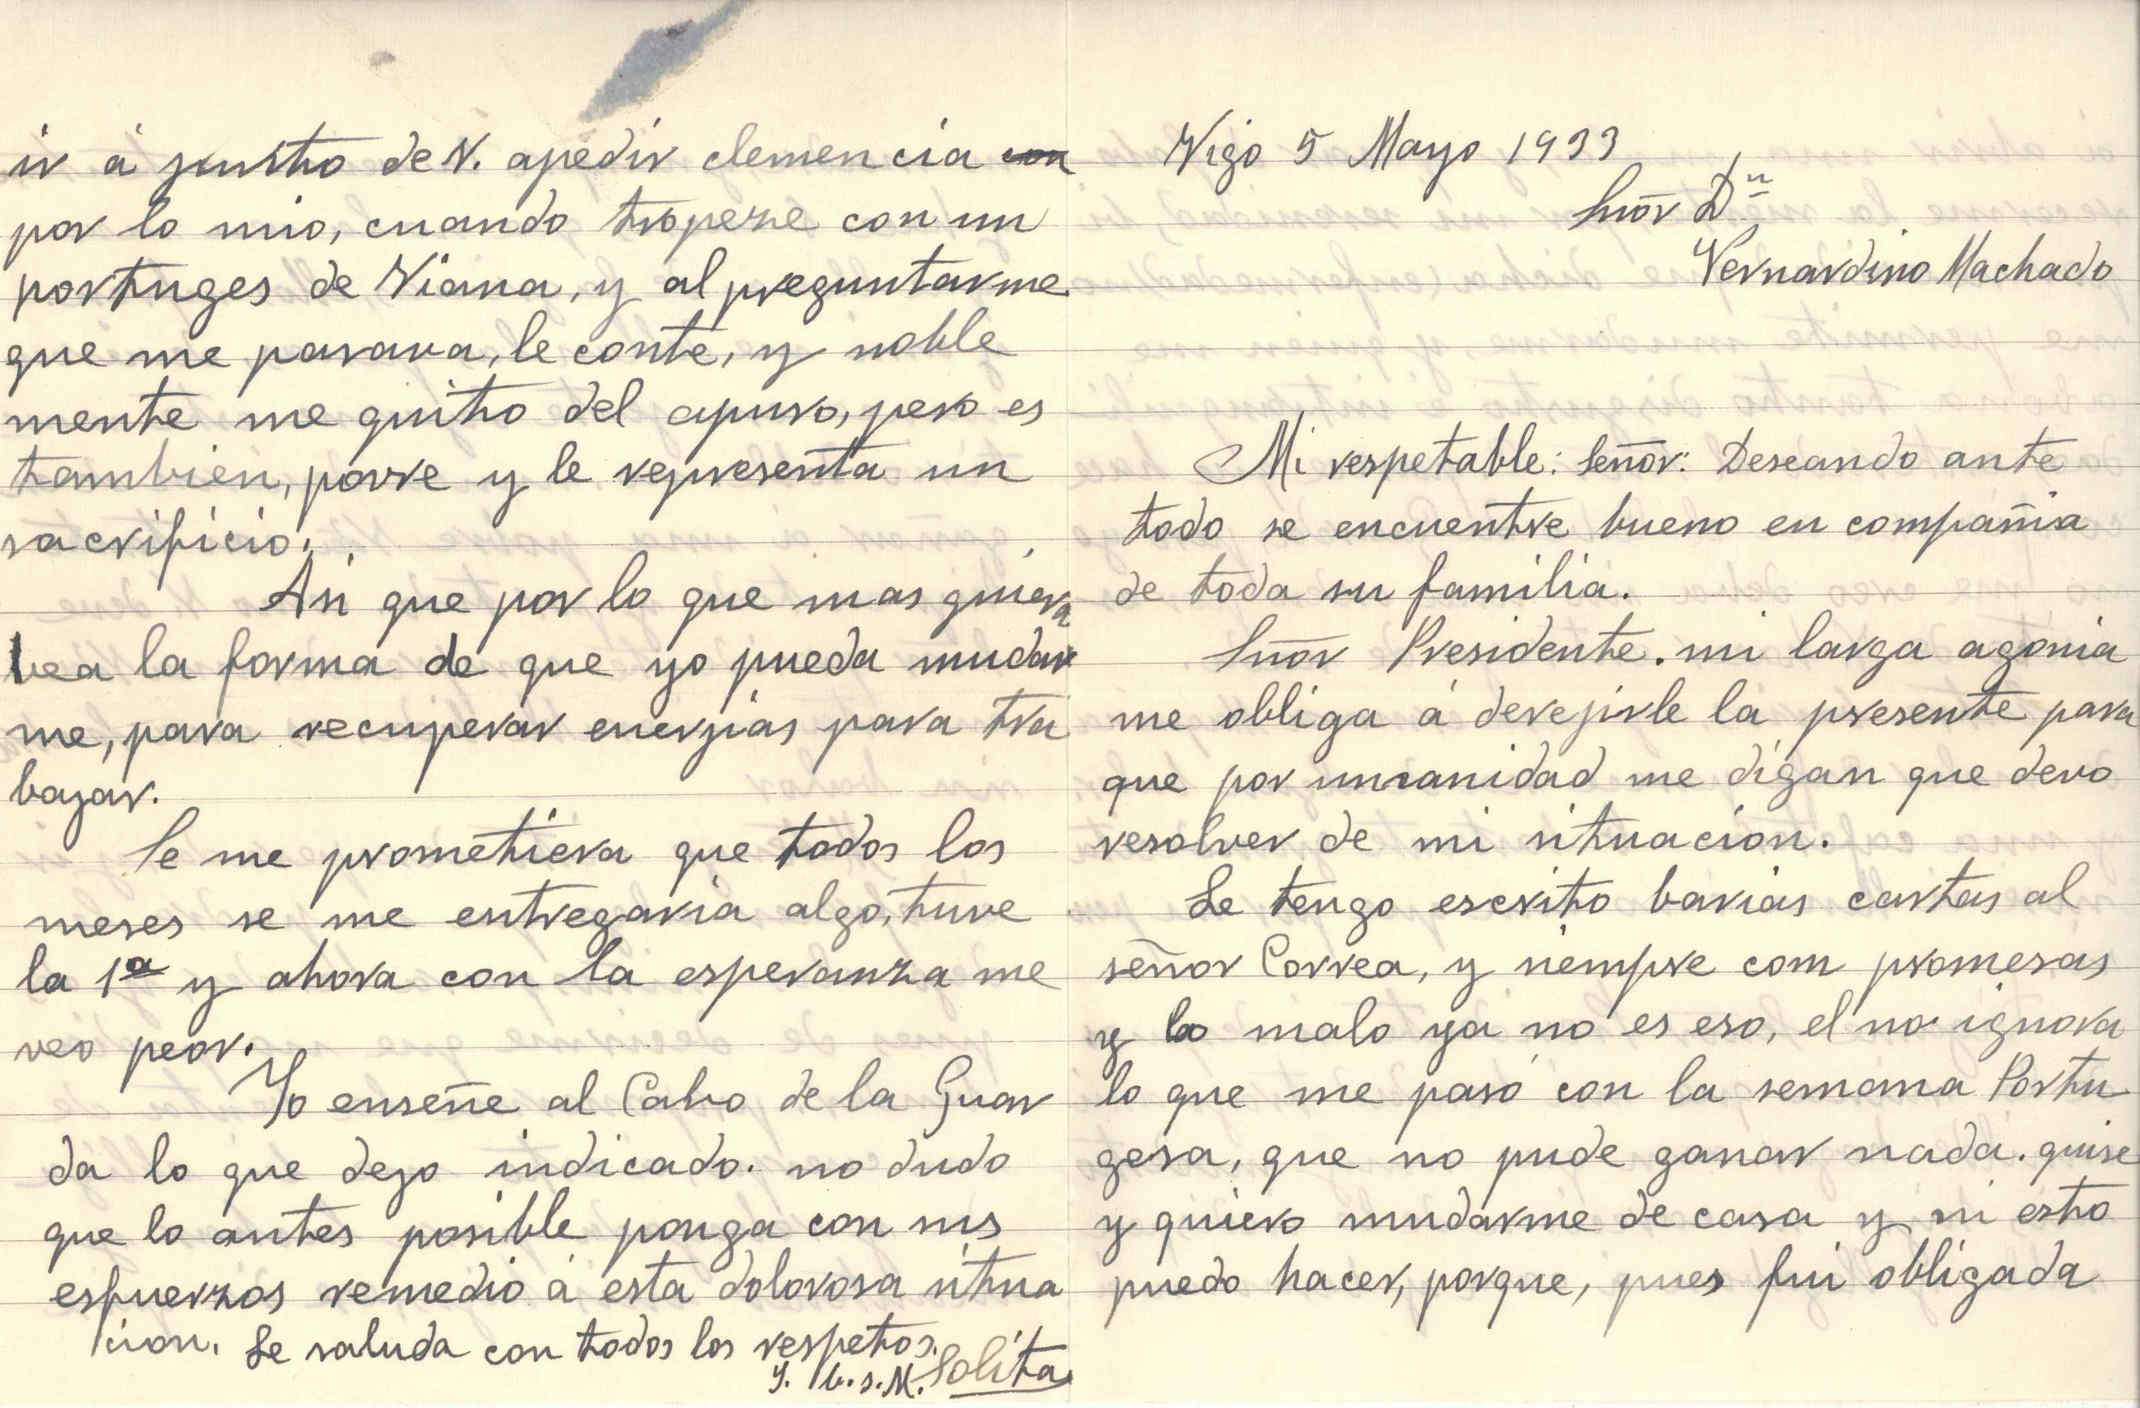 Vigo 5 Mayo 1933
Señor Dn
Vernardino Machado
Mi respetable: Señor: Deseando ante
todo se encuentre bueno en compañia
de toda su familia.
Señor Presidente. mi larga agonia
me obliga á derejirle la presente para
que por umanidad me digan que devo
resolver de mi situacion.
Le tengo escrito barias cartas al
señor Correa, y siempre com promesas
y lo malo ya no es eso, el no ignora
lo que me pasó con la semana Portu
gesa, que no pude ganar nada. quise
y quiero mudarme de casa y ni esto
puedo hacer, porque, pues fui obligada
ir á junto de V. apedir clemencia con
por lo mio, cuando tropeze con un
portuges de Viana, y al preguntarme
que me pasava, le conte, y noble
mente me quito del apuro, pero es
tambien, povre y le representa un
sacrificio.
Asi que por lo que mas quiera
vea la forma de que yo pueda mudar
me, para recuperar enerjias para tra
bajar.
Se me prometiera que todos los
meses se me entregaria algo, tuve
la 1a y ahora con la esperanza me
veo peor.
Yo enseñe al Cabo de la Guar
da lo que dejo indicado. no dudo
que lo antes posible ponga con sus
esfuerzos remedio á esta dolorosa situa
cion. Le saluda con todos los respetos.
b.s.M. Solita